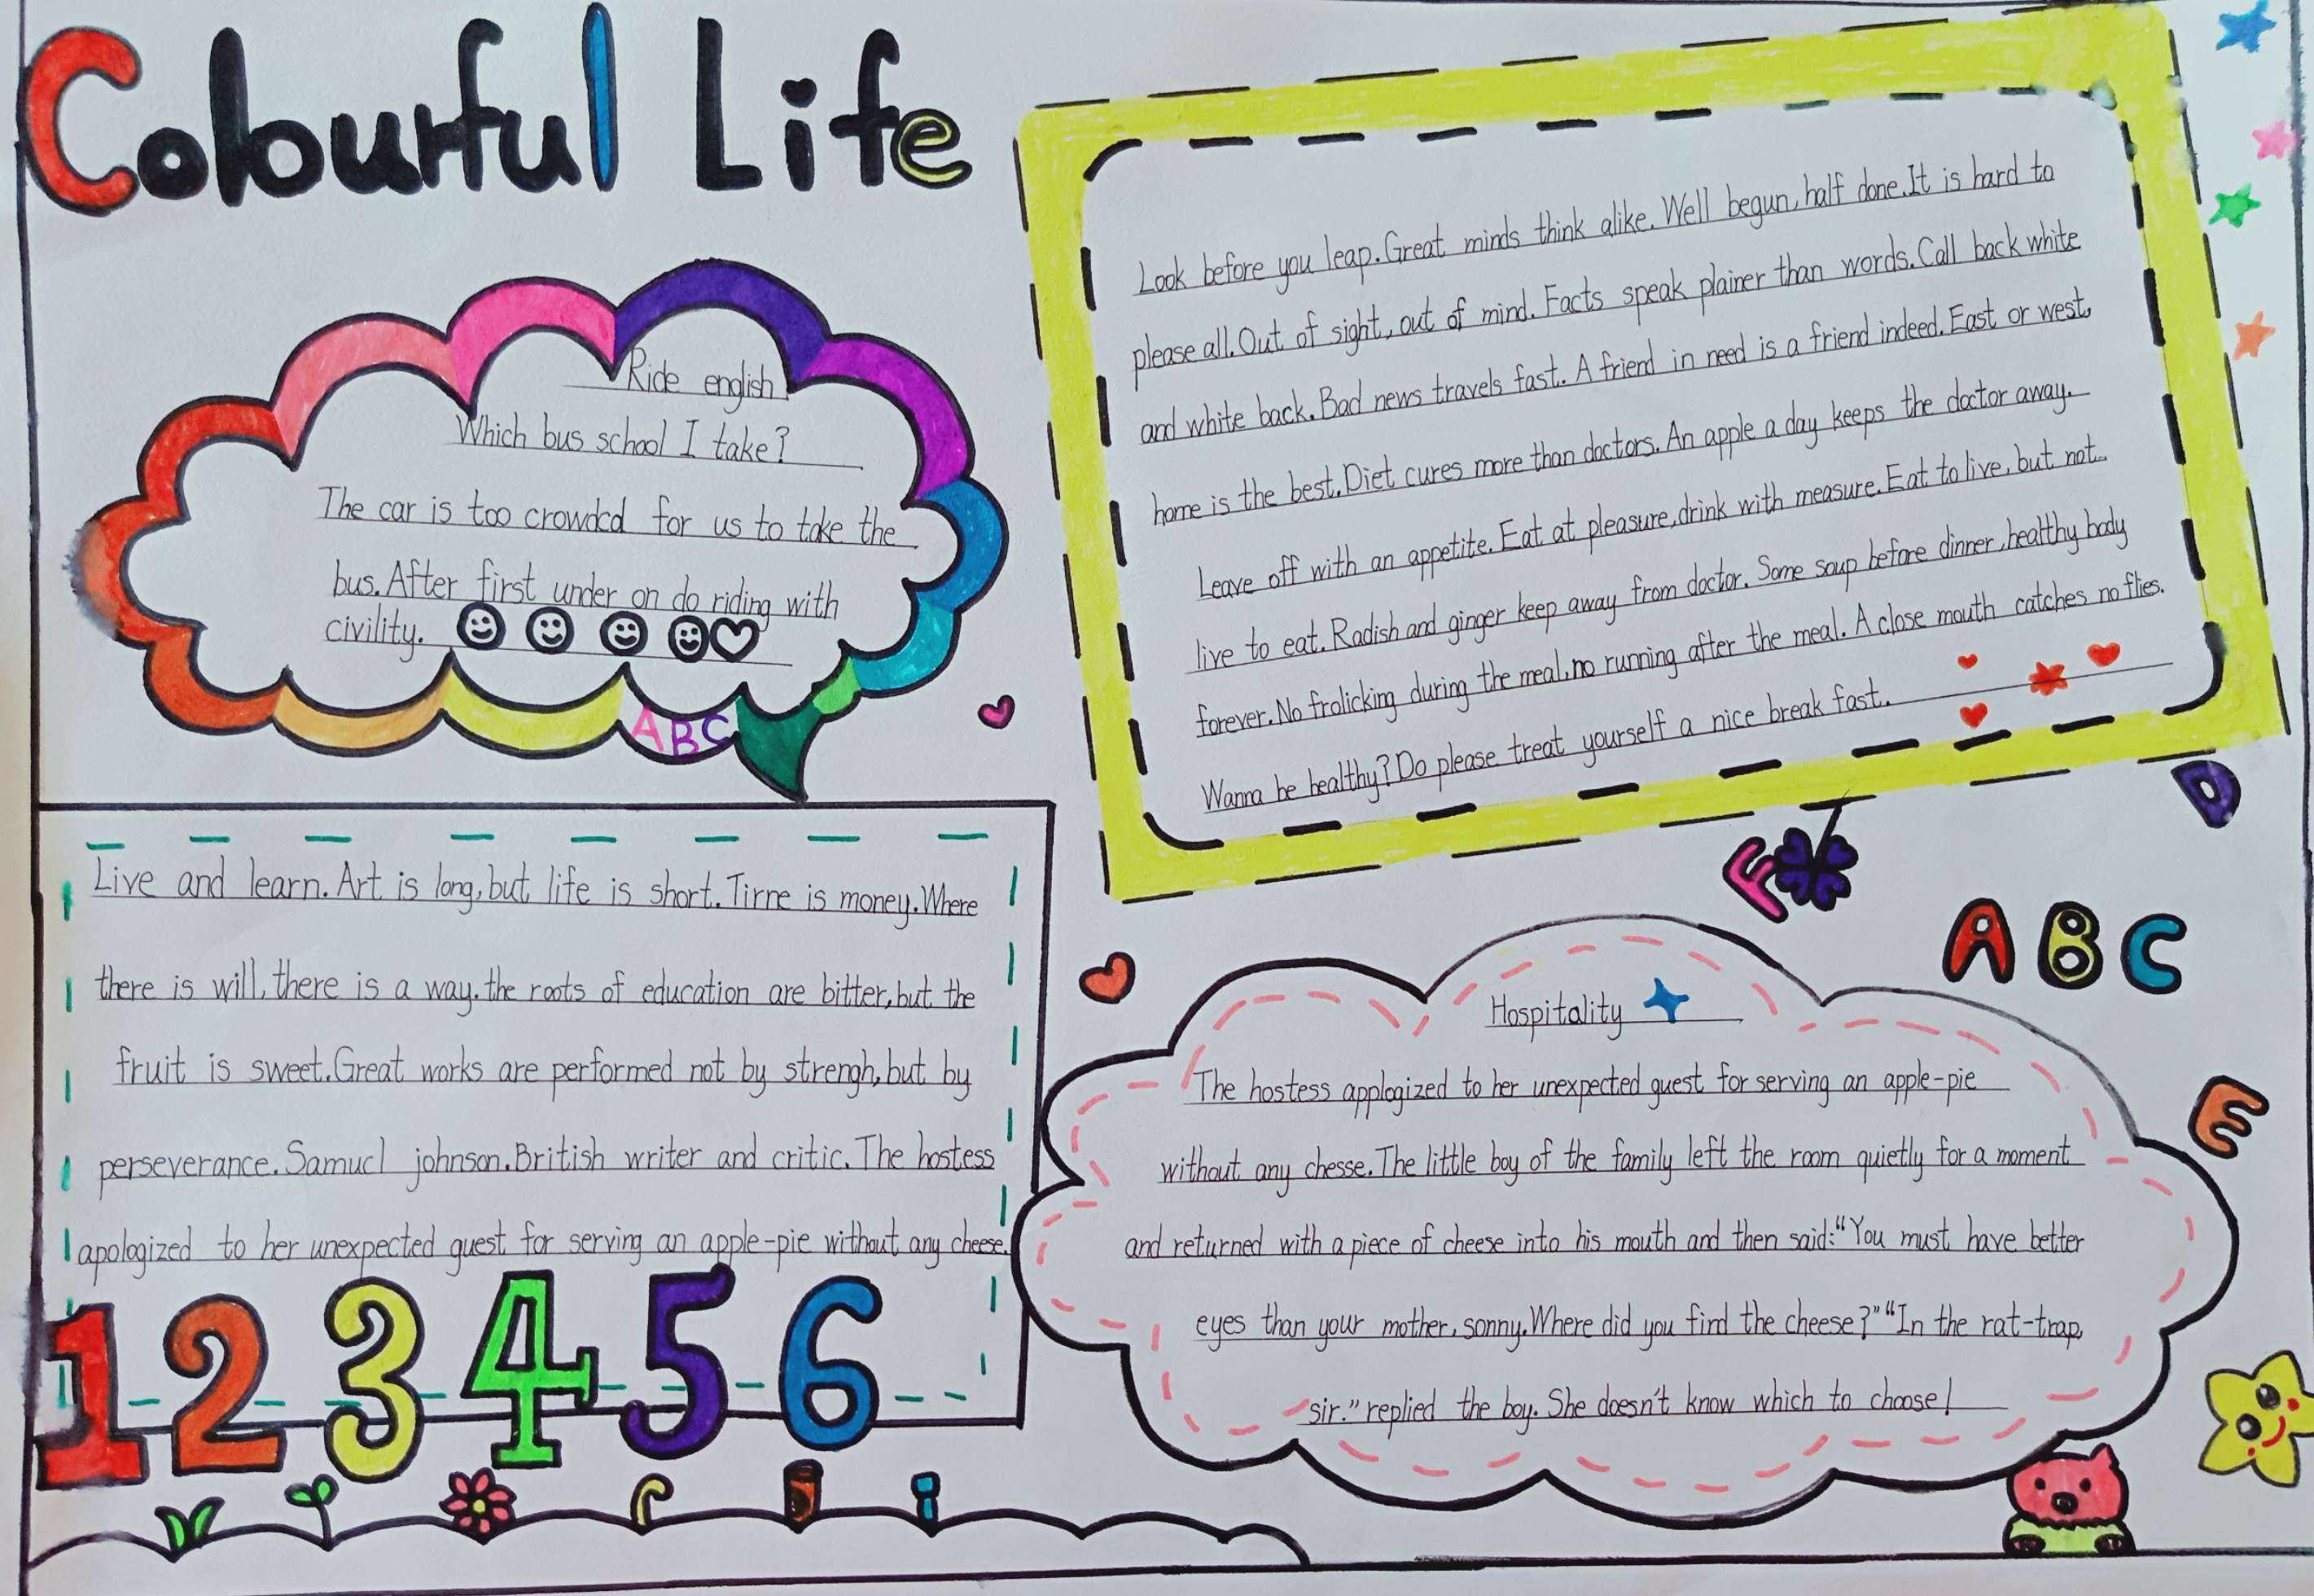 Colourful Life
Ride english
Which bus school I take?
The car is too crowdcd for us to take the
bus. After first under on do riding with
civility.
ABC
Look before you leap. Great minds think alike. Well begun, half done. It is hard to
please all. Out of sight, out of mind. Facts speak plainer than words. Call back white
and white back. Bad news travels fast. A friend in need is a friend indeed. East or west,
home is the best. Diet cures more than doctors. An apple a day keeps the doctor away.
Leave off with an appetite. Eat at pleasure, drink with measure. Eat to live, but not
live to eat. Radish and ginger keep away from doctor. Some soup before dinner, healthy body
forever. No frolicking during the meal, no running after the meal. A close mouth catches no flies.
Wanna be healthy? Do please treat yourself a nice break fast.
D
F
A B C
E
Live and learn. Art is long, but life is short. Tirne is money. Where
there is will, there is a way. the roots of education are bitter, but the
fruit is sweet. Great works are performed not by strengh, but by
perseverance. Samucl johnson. British writer and critic. The hostess
apologized to her unexpected guest for serving an apple-pie without any cheese.
1 2 3 4 5 6
Hospitality
The hostess applogized to her unexpected guest for serving an apple-pie
without any chesse. The little boy of the family left the room quietly for a moment
and returned with a piece of cheese into his mouth and then said: "You must have better
eyes than your mother, sonny. Where did you find the cheese?" "In the rat-trap,
sir." replied the boy. She doesn't know which to choose!